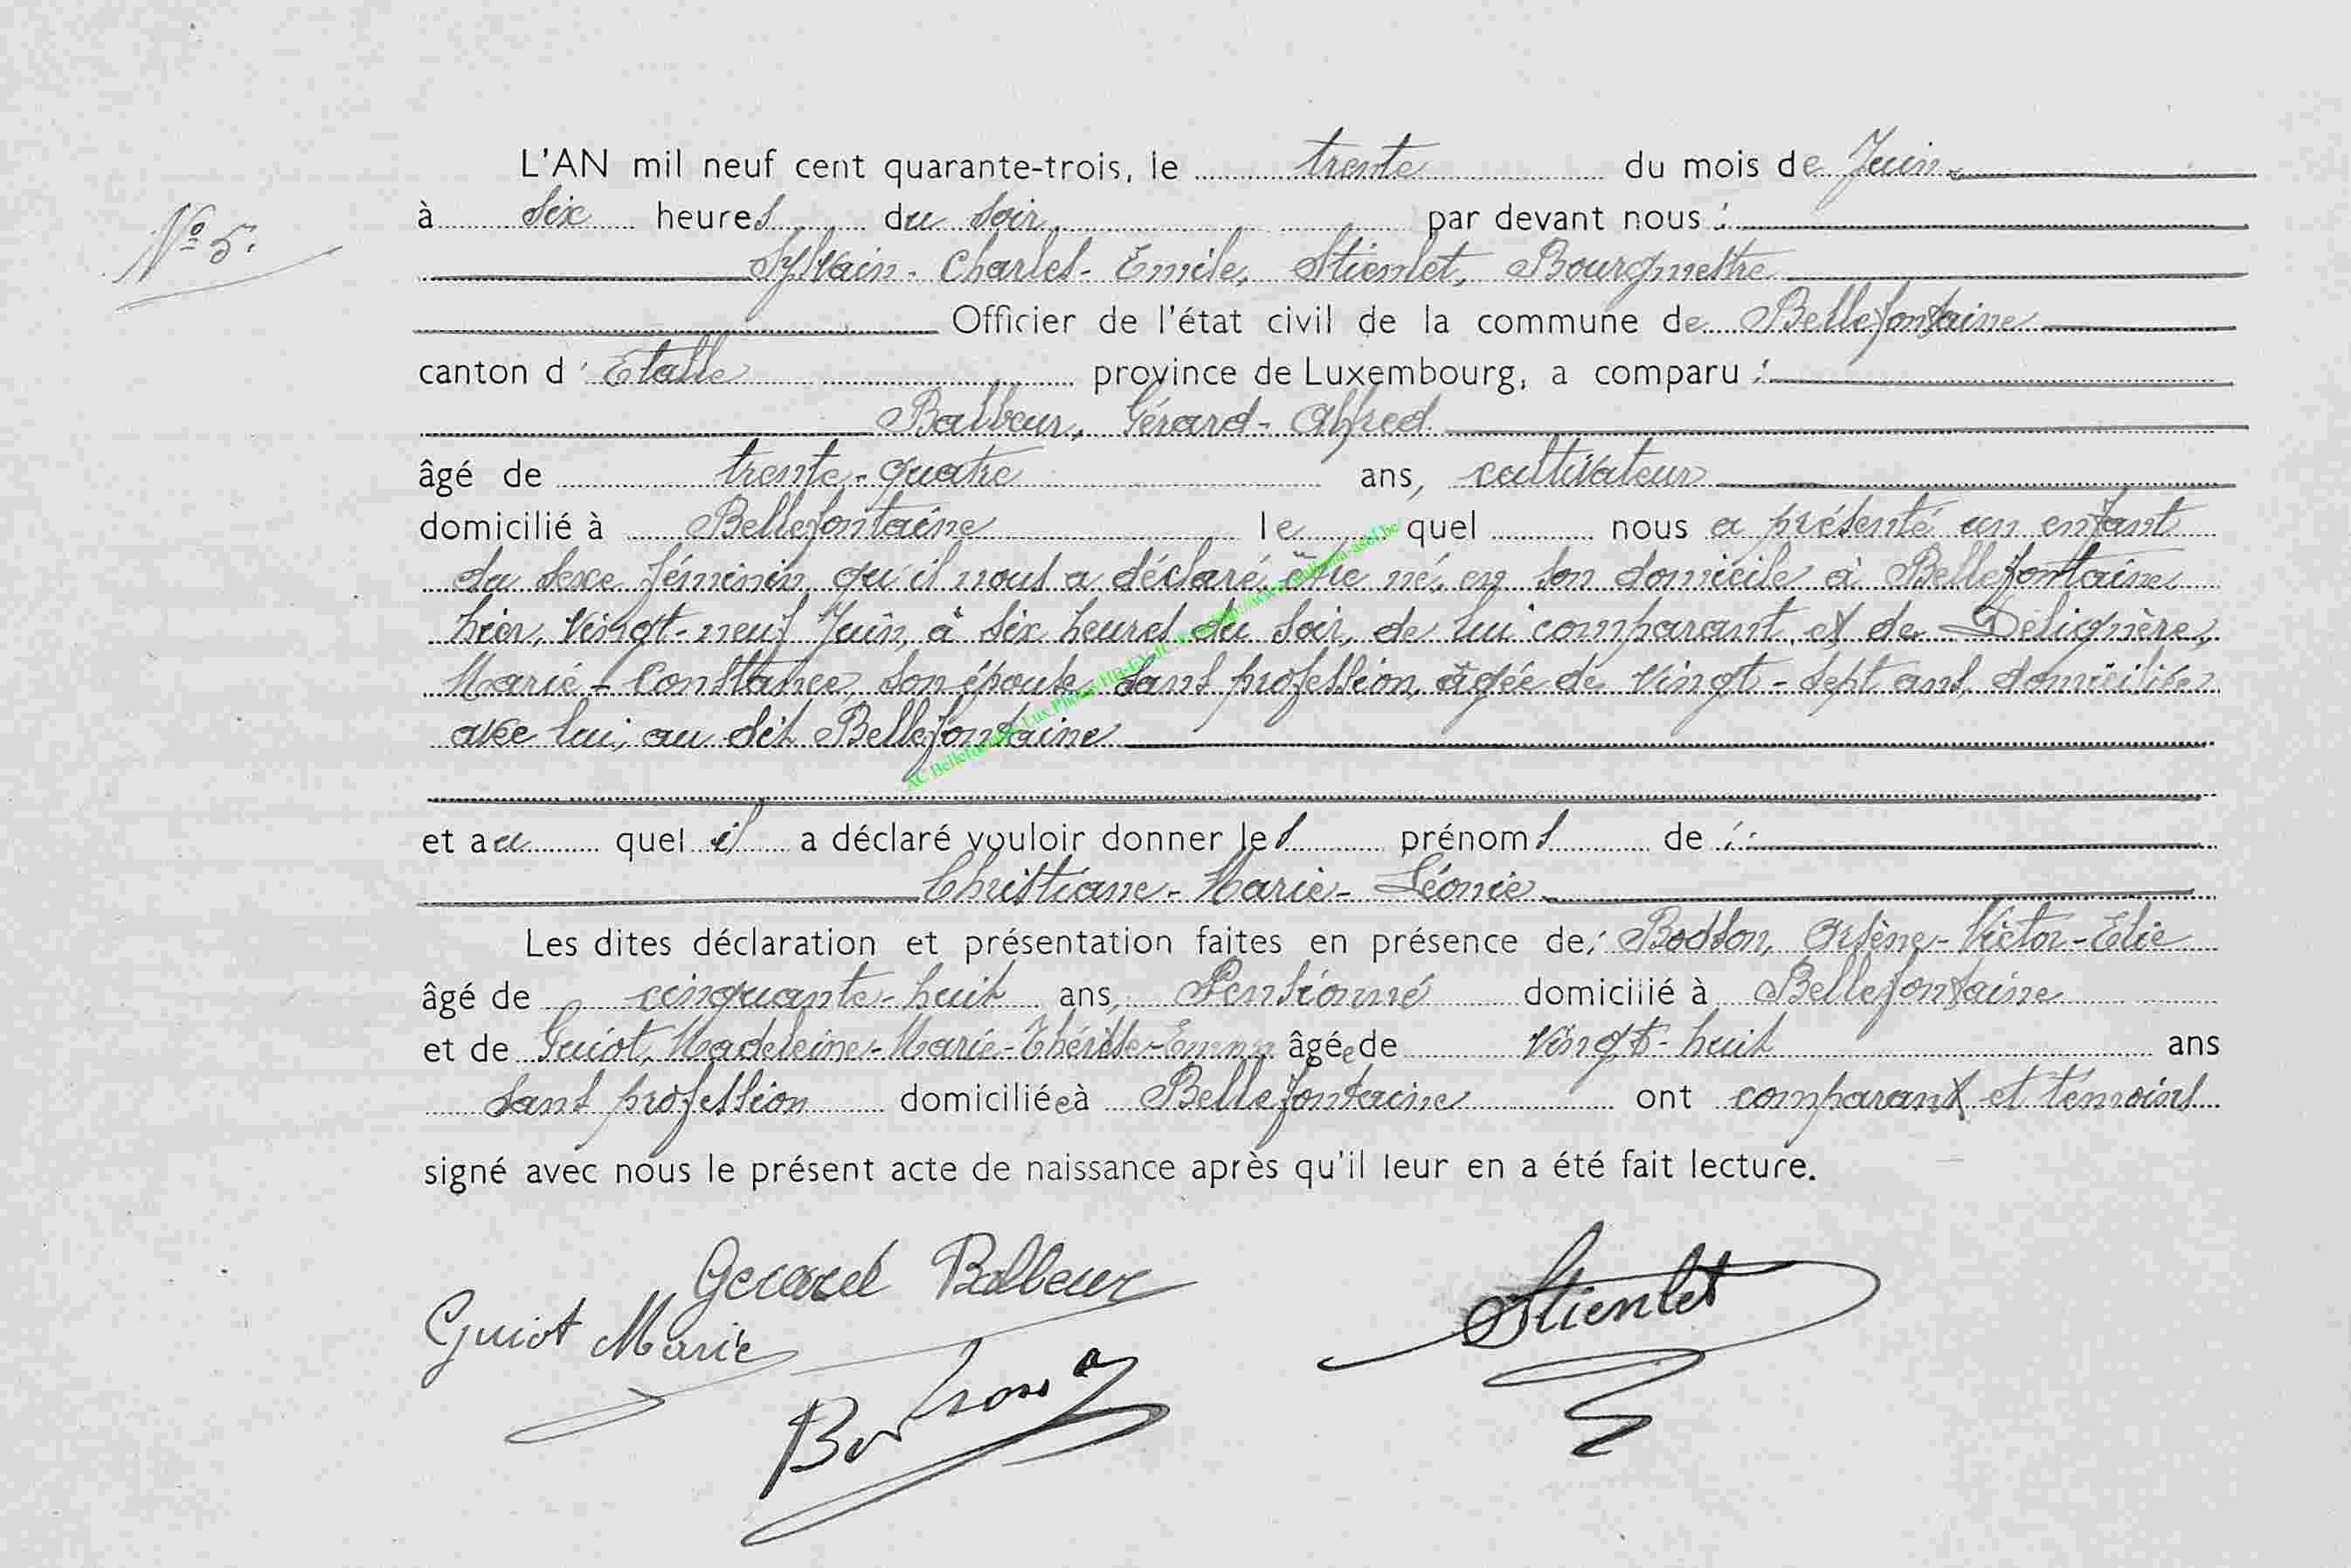 L'AN mil neuf cent quarante-trois, le trente du mois de Juin
N° 5.
à six heures du soir par devant nous :
Sylvain-Charles-Emile, Stienlet, Bourgmestre
Officier de l'état civil de la commune de Bellefontaine
canton d'Etalle province de Luxembourg, a comparu :
Balbeur, Gérard-Alfred
âgé de trente-quatre ans, cultivateur
domicilié à Bellefontaine lequel nous a présenté un enfant
du sexe féminin qu'il nous a déclaré être né, en son domicile à Bellefontaine
hier, vingt-neuf Juin, à six heures du soir, de lui comparant et de Delignère,
Marie-Constance, son épouse, sans profession, âgée de vingt-sept ans, domiciliée
avec lui, au dit Bellefontaine
et au quel il a déclaré vouloir donner les prénoms de :
Christiane-Marie-Léonie
Les dites déclaration et présentation faites en présence de: Bodson, Arsène-Victor-Elie
âgé de cinquante-huit ans, Pensionné domicilié à Bellefontaine
et de Guiot, Madeleine-Marie-Thérèse-Emma âgée de vingt-huit ans
sans profession domiciliée à Bellefontaine ont comparant et témoins
signé avec nous le présent acte de naissance après qu'il leur en a été fait lecture.
Gerard Balbeur
Stienlet
Guiot Marie
Bodson